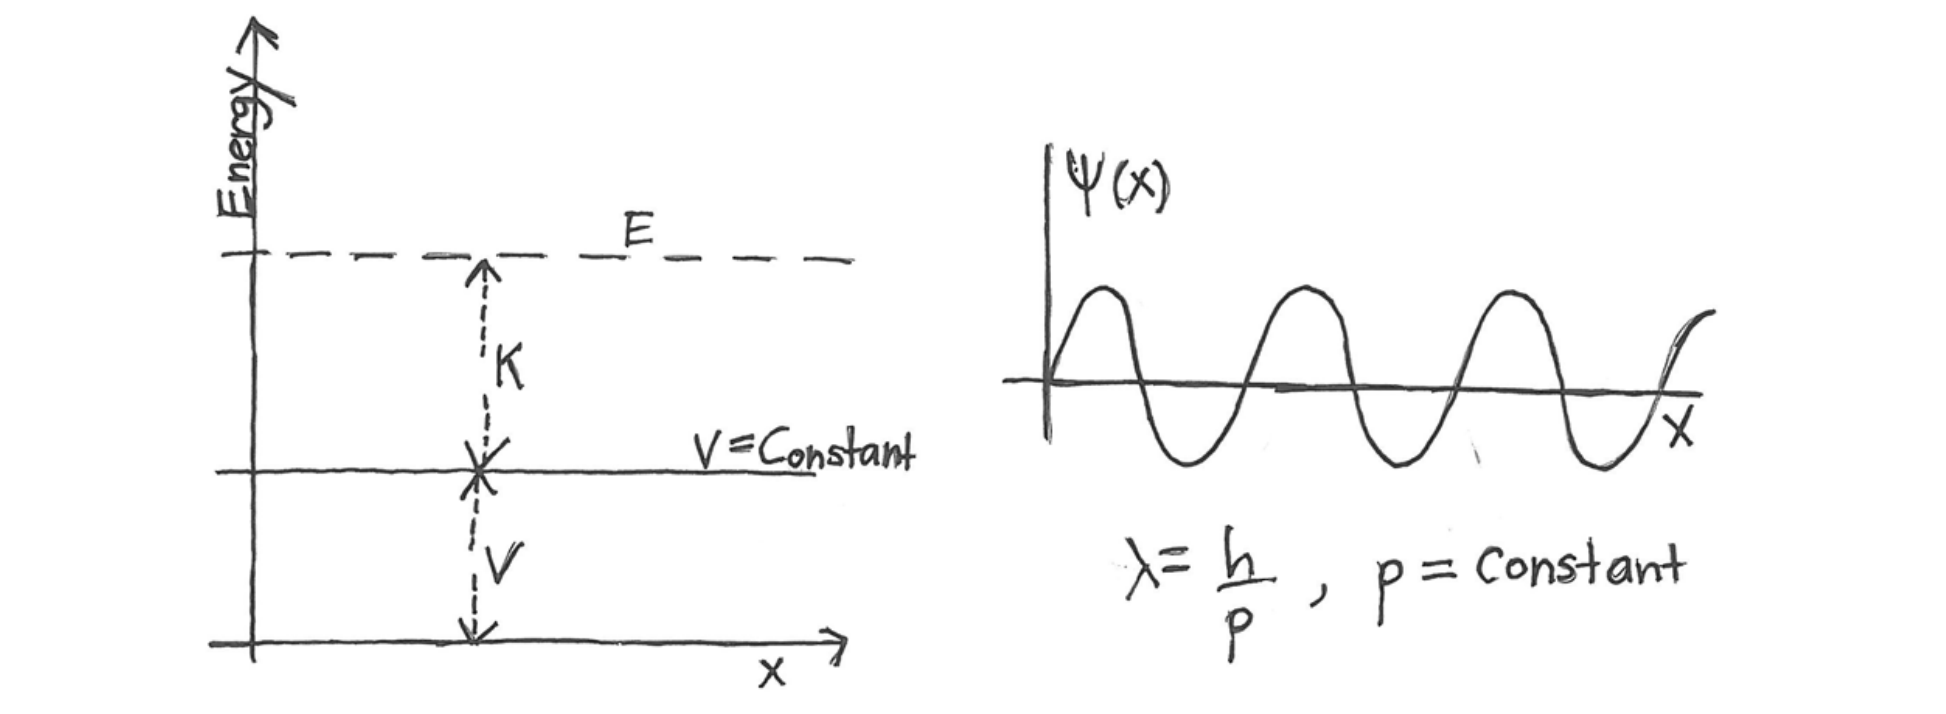 Energy
E
K
V = Constant
V
x
Ψ(x)
x
λ = h/p , p = Constant